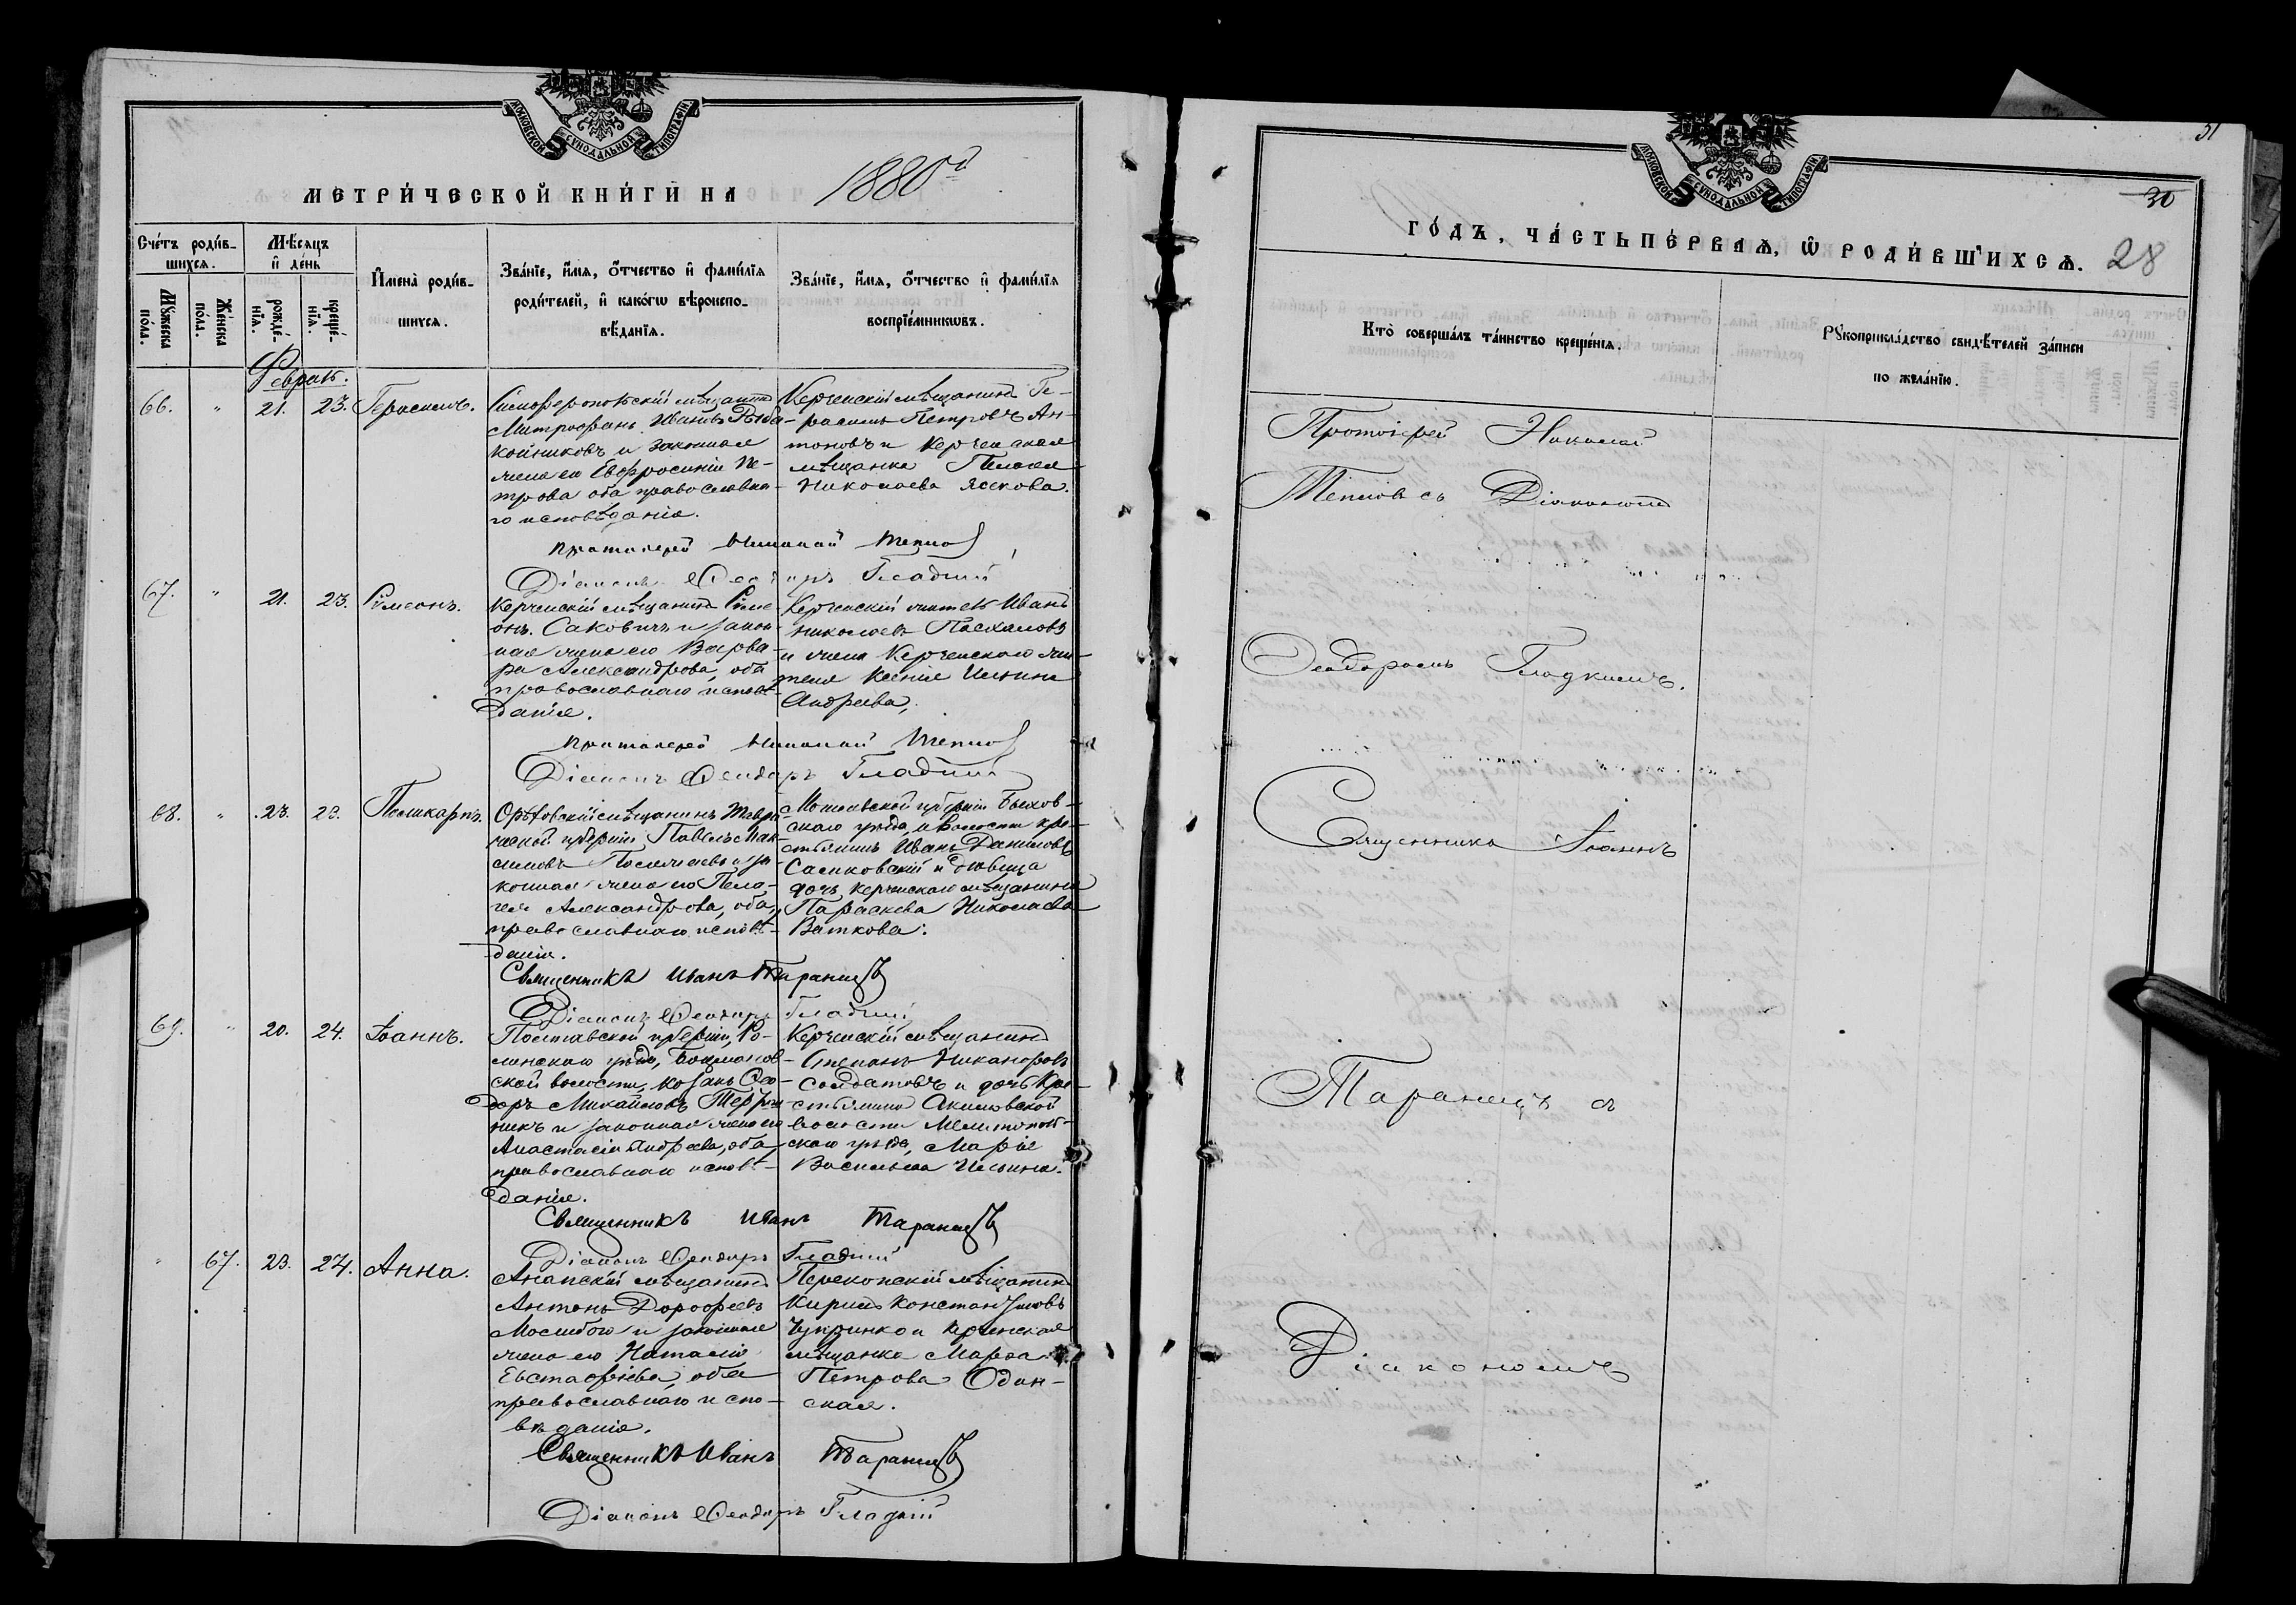 МОСКОВСКОЙ СУНОДАЛЬНОЙ ТИПОГРАФІИ
МЕТРИ́ЧЕСКОЙ КНИ́ГИ НА 1880й
Сче́тъ роди́в-
шихся.
Мѣ́сяцъ
и҆ де́нь
Мꙋ́жеска по́ла.
Же́нска по́ла.
рожде́-
нїя.
креще́-
нїя.
И҆мена̀ роди́в-
шихся.
Зва́нїе, и҆́мя, ѻ҆́тчество и҆ фами́лїя
роди́телей, и҆ како́гѡ вѣроиспо-
вѣ́данїя.
Зва́нїе, и҆́мя, ѻ҆́тчество и҆ фами́лїя
воспрїе́мникѡвъ.
Феврал.
66. " 21. 23. Герасимъ.
Симферопольскій мѣщанинъ
Митрофанъ Ивановъ Рыба-
койниковъ и законная
жена его Евфросинія Пе-
трова оба православна-
го исповѣданія.
Керченскій мѣщанинъ Ге-
расимъ Петровъ Ан-
тоновъ и Керченская
мѣщанка Пелагея
Николаева Яскова.
Протоіерей Николай Тепловъ
Діаконъ Ѳеодоръ Гладкій
67. " 21. 23. Сѵмеонъ.
Керченскій мѣщанинъ Симе-
онъ Саковичъ и закон-
ная жена его Варва-
ра Александрова, оба
православнаго исповѣ-
данія.
Керченскій житель Иванъ
Николаевъ Пасхаловъ
и жена Керченскаго жи-
теля Ксенія Ильина
Андреева.
Протоіерей Николай Тепловъ
Діаконъ Ѳеодоръ Гладкій
68. " 23. 23. Поликарпъ.
Орѣховскій мѣщанинъ Таври-
ческой губерніи, Павелъ Мак-
симовъ и за-
конная жена его Пела-
гея Александрова, оба
православнаго исповѣ-
данія.
Могилевской губерніи Быхов-
скаго уѣзда, и волости кре-
стьянинъ Иванъ Даниловъ
Сасиковскій и дѣвица
дочь Керченскаго мѣщанина
Параскева Николаева
Ваткова.
Священникъ Иванъ Таранецъ
Діаконъ Ѳеодоръ Гладкій
69. " 20. 24. Іоаннъ.
Полтавской губерніи, Ро-
менскаго уѣзда,
ской волости, козакъ Ѳео-
доръ Михайловъ
и законная жена его
Анастасія Андреева, оба
православнаго исповѣ-
данія.
Керченскій мѣщанинъ
Степанъ Никаноровъ
Солдатовъ и дочь Кре-
стьянина Акимовской
волости Мелитополь-
скаго уѣзда, Марія
Васильева Ильина.
Священникъ Иванъ Таранецъ
Діаконъ Ѳеодоръ Гладкій
" 67. 23. 24. Анна.
Анапскій мѣщанинъ
Антонъ Дорофеевъ
и законная
жена его Наталія
Евстафіева, оба
православнаго испо-
вѣданія.
Перекопскій мѣщанинъ
Кирилъ Константиновъ
и Керченская
мѣщанка Марѳа
Петрова Один-
ская.
Священникъ Иванъ Таранецъ
Діаконъ Ѳеодоръ Гладкій
51
30
28
МОСКОВСКОЙ СУНОДАЛЬНОЙ ТИПОГРАФІИ
ГО́ДЪ, ЧА́СТЬ ПЕ́РВАЯ, Ѡ҆ РОДИ́ВШИХСЯ.
Кто̀ соверша́лъ та́инство креще́нїя.
Рꙋкоприкла́дство свидѣ́телей за́писи
по жела́нїю.
Протоіерей Николай
Тепловъ съ Діакономъ
Ѳеодоромъ Гладкимъ.
Священникъ Іоаннъ
Таранецъ съ
Діакономъ